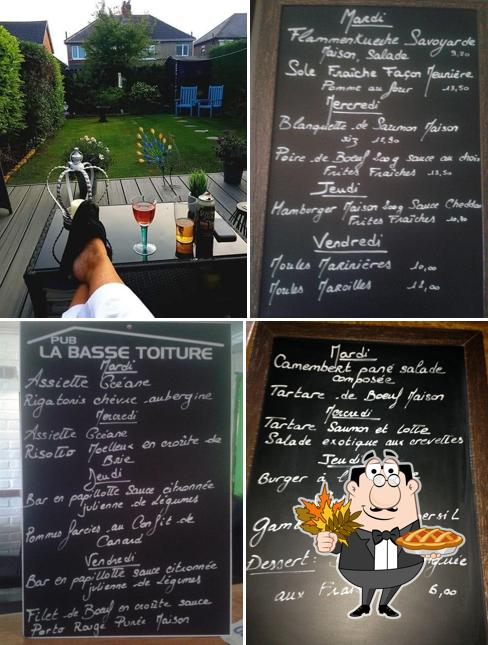 Mardi
Flammenkueche Savoyarde
Maison, Salade 9,80
Sole Fraîche Façon Meunière
Pomme au four 13,50
Mercredi
Blanquette de Saumon Maison
riz 11,50
Poire de Boeuf 200g sauce au choix
Frites Fraîches 13,50
Jeudi
Hamborger Maison 200g Sauce Cheddar
Frites Fraîches 10,90
Vendredi
Moules Marinières 10,00
Moules Maroilles 12,00
PUB
LA BASSE TOITURE
Mardi
Assiette Océane
Rigatonis chèvre aubergine
Mercredi
Assiette Océane
Risotto Moelleux en croûte de
Brie
Jeudi
Bar en papillotte sauce citronnée
julienne de légumes
Pommes farcies au Confit de
Canard
Vendredi
Bar en papillotte sauce citronnée
julienne de légumes
Filet de Boeuf en croûte sauce
Porto Rouge Purée Maison
Mardi
Camembert pané salade
composée
Tartare de Boeuf Maison
Mercredi
Tartare Saumon et Lotte
Salade exotique aux crevettes
Jeudi
Burger à
Dessert:
aux 6,00